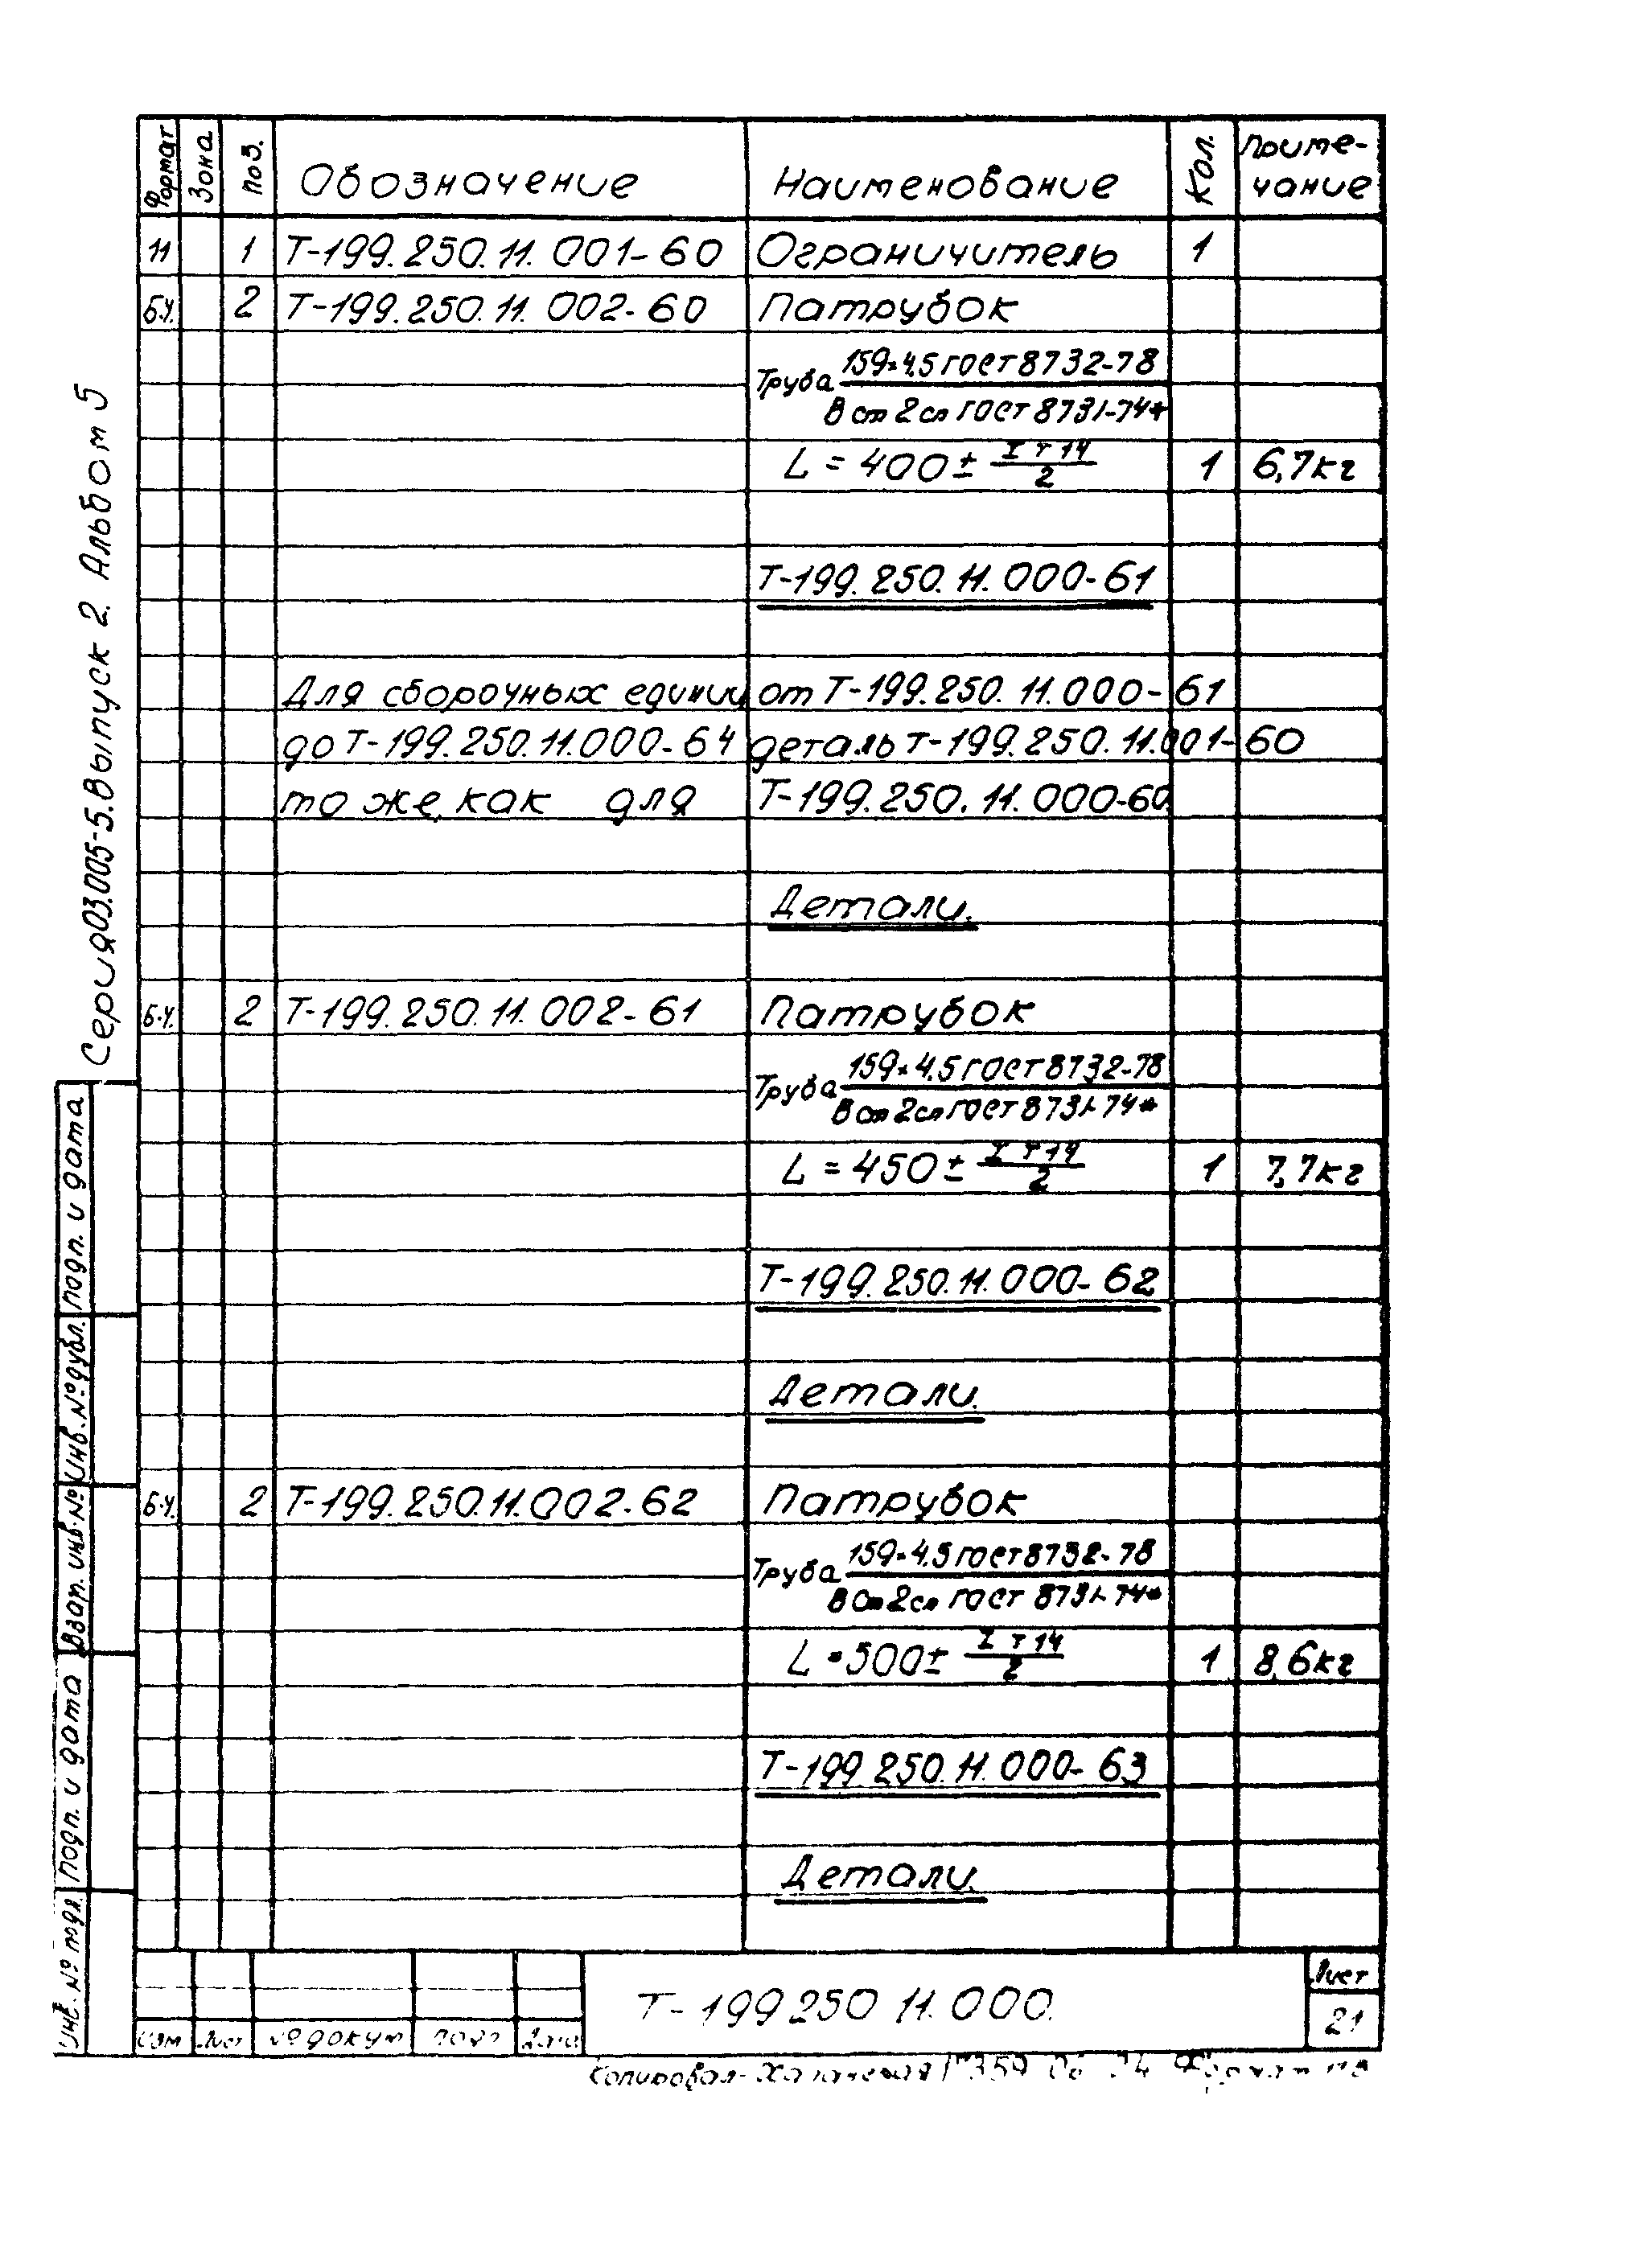 Формат Зона Поз. Обозначение Наименование Кол. Приме-
чание
11 1 Т-199.250.11.001-60 Ограничитель 1
Б.ч. 2 Т-199.250.11.002-60 Патрубок
Труба 159×4,5 гост 8732-78
В ст 2сп гост 8731-74*
L = 400 ± IT14/2 1 6,7кг
Т-199.250.11.000-61
Для сборочных единиц от Т-199.250.11.000-61
до Т-199.250.11.000-64 деталь Т-199.250.11.001-60
то же, как для Т-199.250.11.000-60.
Детали.
Б.ч. 2 Т-199.250.11.002-61 Патрубок
Труба 159×4,5 гост 8732-78
В ст 2сп гост 8731-74*
L = 450 ± IT14/2 1 7,7кг
Т-199.250.11.000-62
Детали.
Б.ч. 2 Т-199.250.11.002-62 Патрубок
Труба 159×4,5 гост 8732-78
В ст 2сп гост 8731-74*
L = 500 ± IT14/2 1 8,6кг
Т-199 250.11.000-63
Детали.
Серия 03.005-5. Выпуск 2. Альбом 5
Подп. и дата
Инв. № дубл.
Взам. инв. №
Подп. и дата
Инв. №
Изм Лист № докум подп Дата
Т-199 250 11.000.
Лист
21
Копировал-